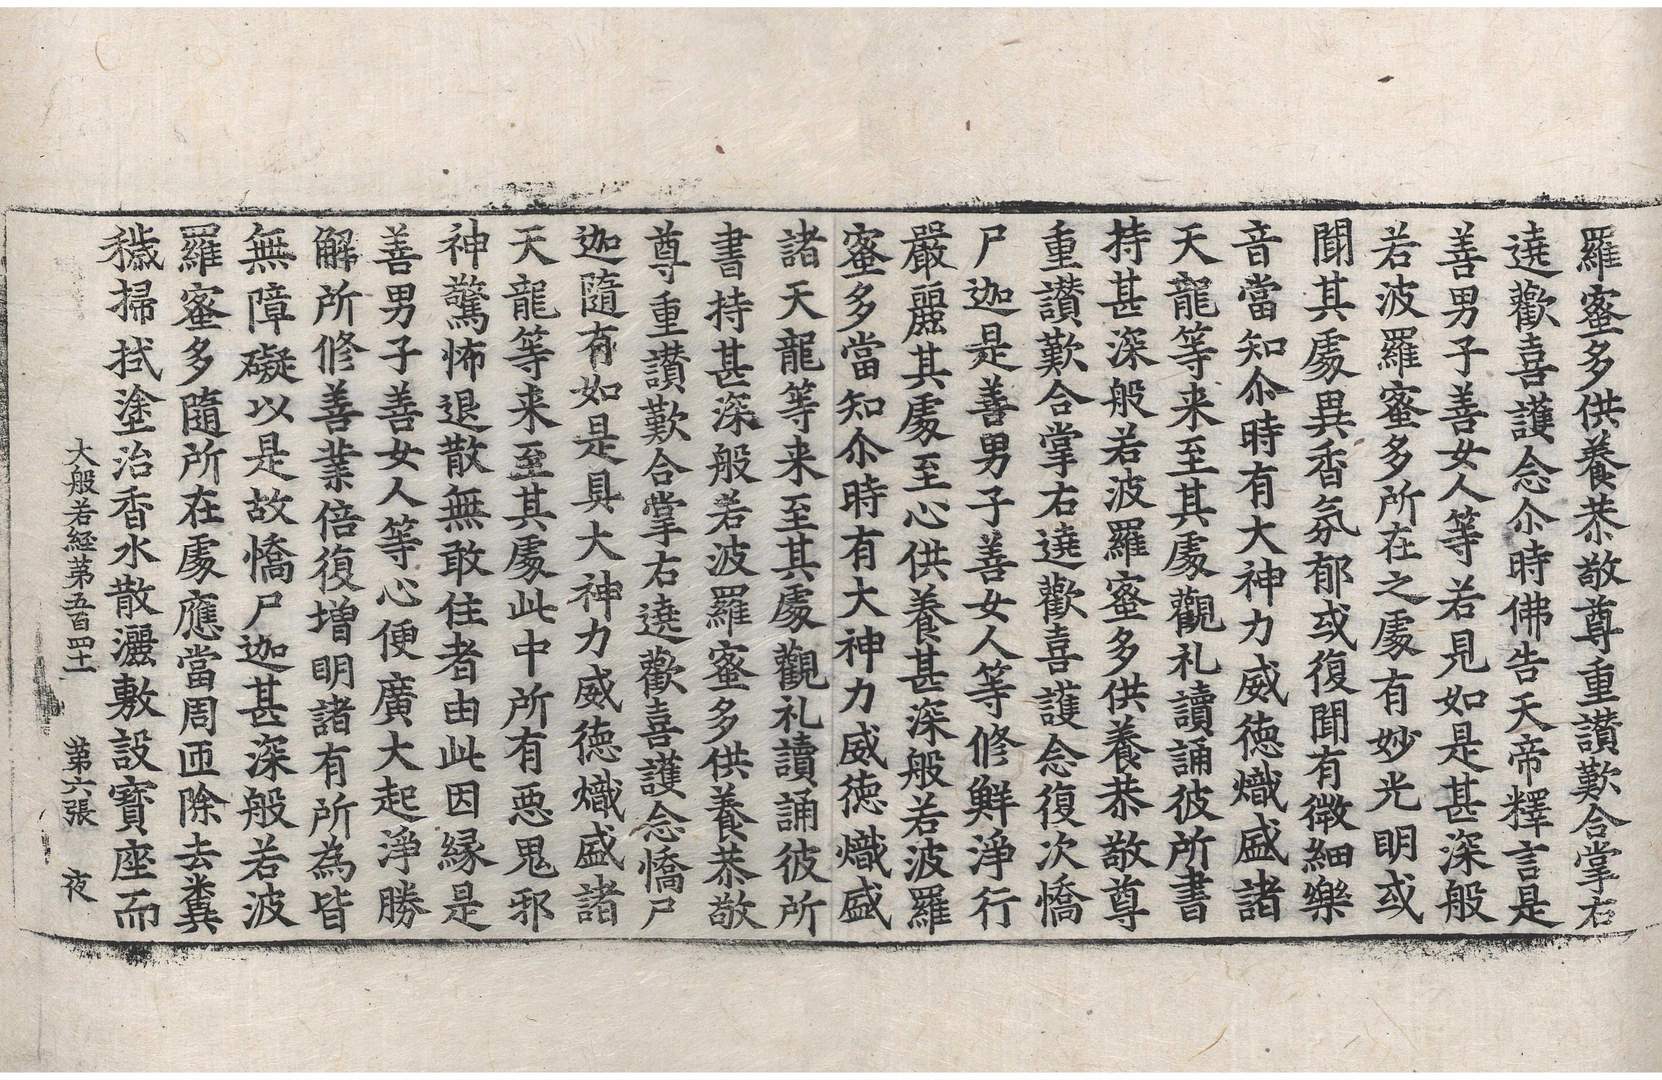 羅蜜多供養恭敬尊重讃歎合掌右
遶歡喜護念尒時佛告天帝釋言是
善男子善女人等若見如是甚深般
若波羅蜜多所在之處有妙光明或
聞其處異香氛郁或復聞有微細樂
音當知尒時有大神力威徳熾盛諸
天龍等来至其處觀礼讀誦彼所書
持甚深般若波羅蜜多供養恭敬尊
重讃歎合掌右遶歡喜護念復次憍
尸迦是善男子善女人等修鮮淨行
嚴麗其處至心供養甚深般若波羅
蜜多當知尒時有大神力威徳熾盛
諸天龍等来至其處觀礼讀誦彼所
書持甚深般若波羅蜜多供養恭敬
尊重讃歎合掌右遶歡喜護念憍尸
迦隨有如是具大神力威徳熾盛諸
天龍等来至其處此中所有惡鬼邪
神驚怖退散無敢住者由此因縁是
善男子善女人等心便廣大起淨勝
解所修善業倍復増明諸有所為皆
無障礙以是故憍尸迦甚深般若波
羅蜜多隨所在處應當周匝除去糞
穢掃拭塗治香水散灑敷設寳座而
大般若經第五百四十一 第六張 夜